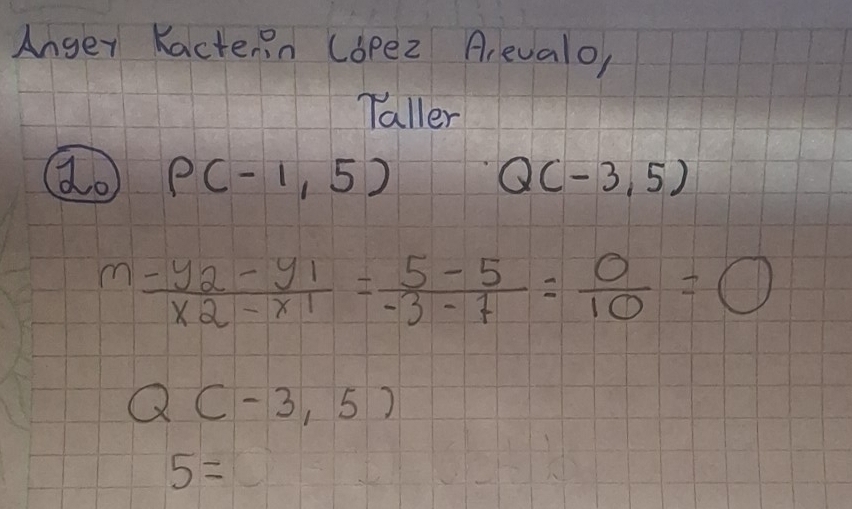 Angey Kacterin López Arevalo,
Taller
1. P(-1, 5) Q(-3, 5)
m = y2 - y1 / x2 - x1 = 5 - 5 / -3 - 7 = 0 / 10 = 0
Q (-3, 5)
5 =